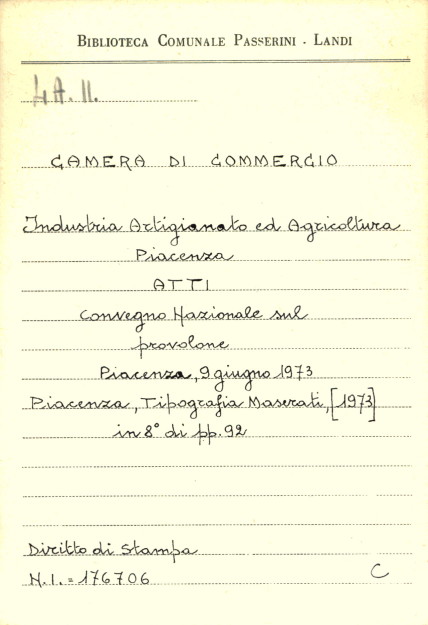 BIBLIOTECA COMUNALE PASSERINI - LANDI
4A. II.
CAMERA DI COMMERCIO
Industria Artigianato ed Agricoltura
Piacenza
ATTI
Convegno Nazionale sul
provolone
Piacenza, 9 giugno 1973
Piacenza, Tipografia Maserati, [1973]
in 8° di pp. 92
Diritto di Stampa
N.I. = 176706
C